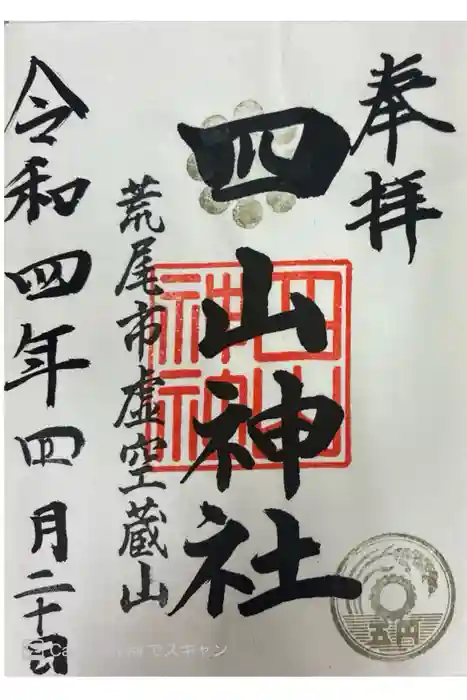 奉拝
四山神社
四山神社
荒尾市虚空蔵山
令和四年四月二十
五円
でスキャン